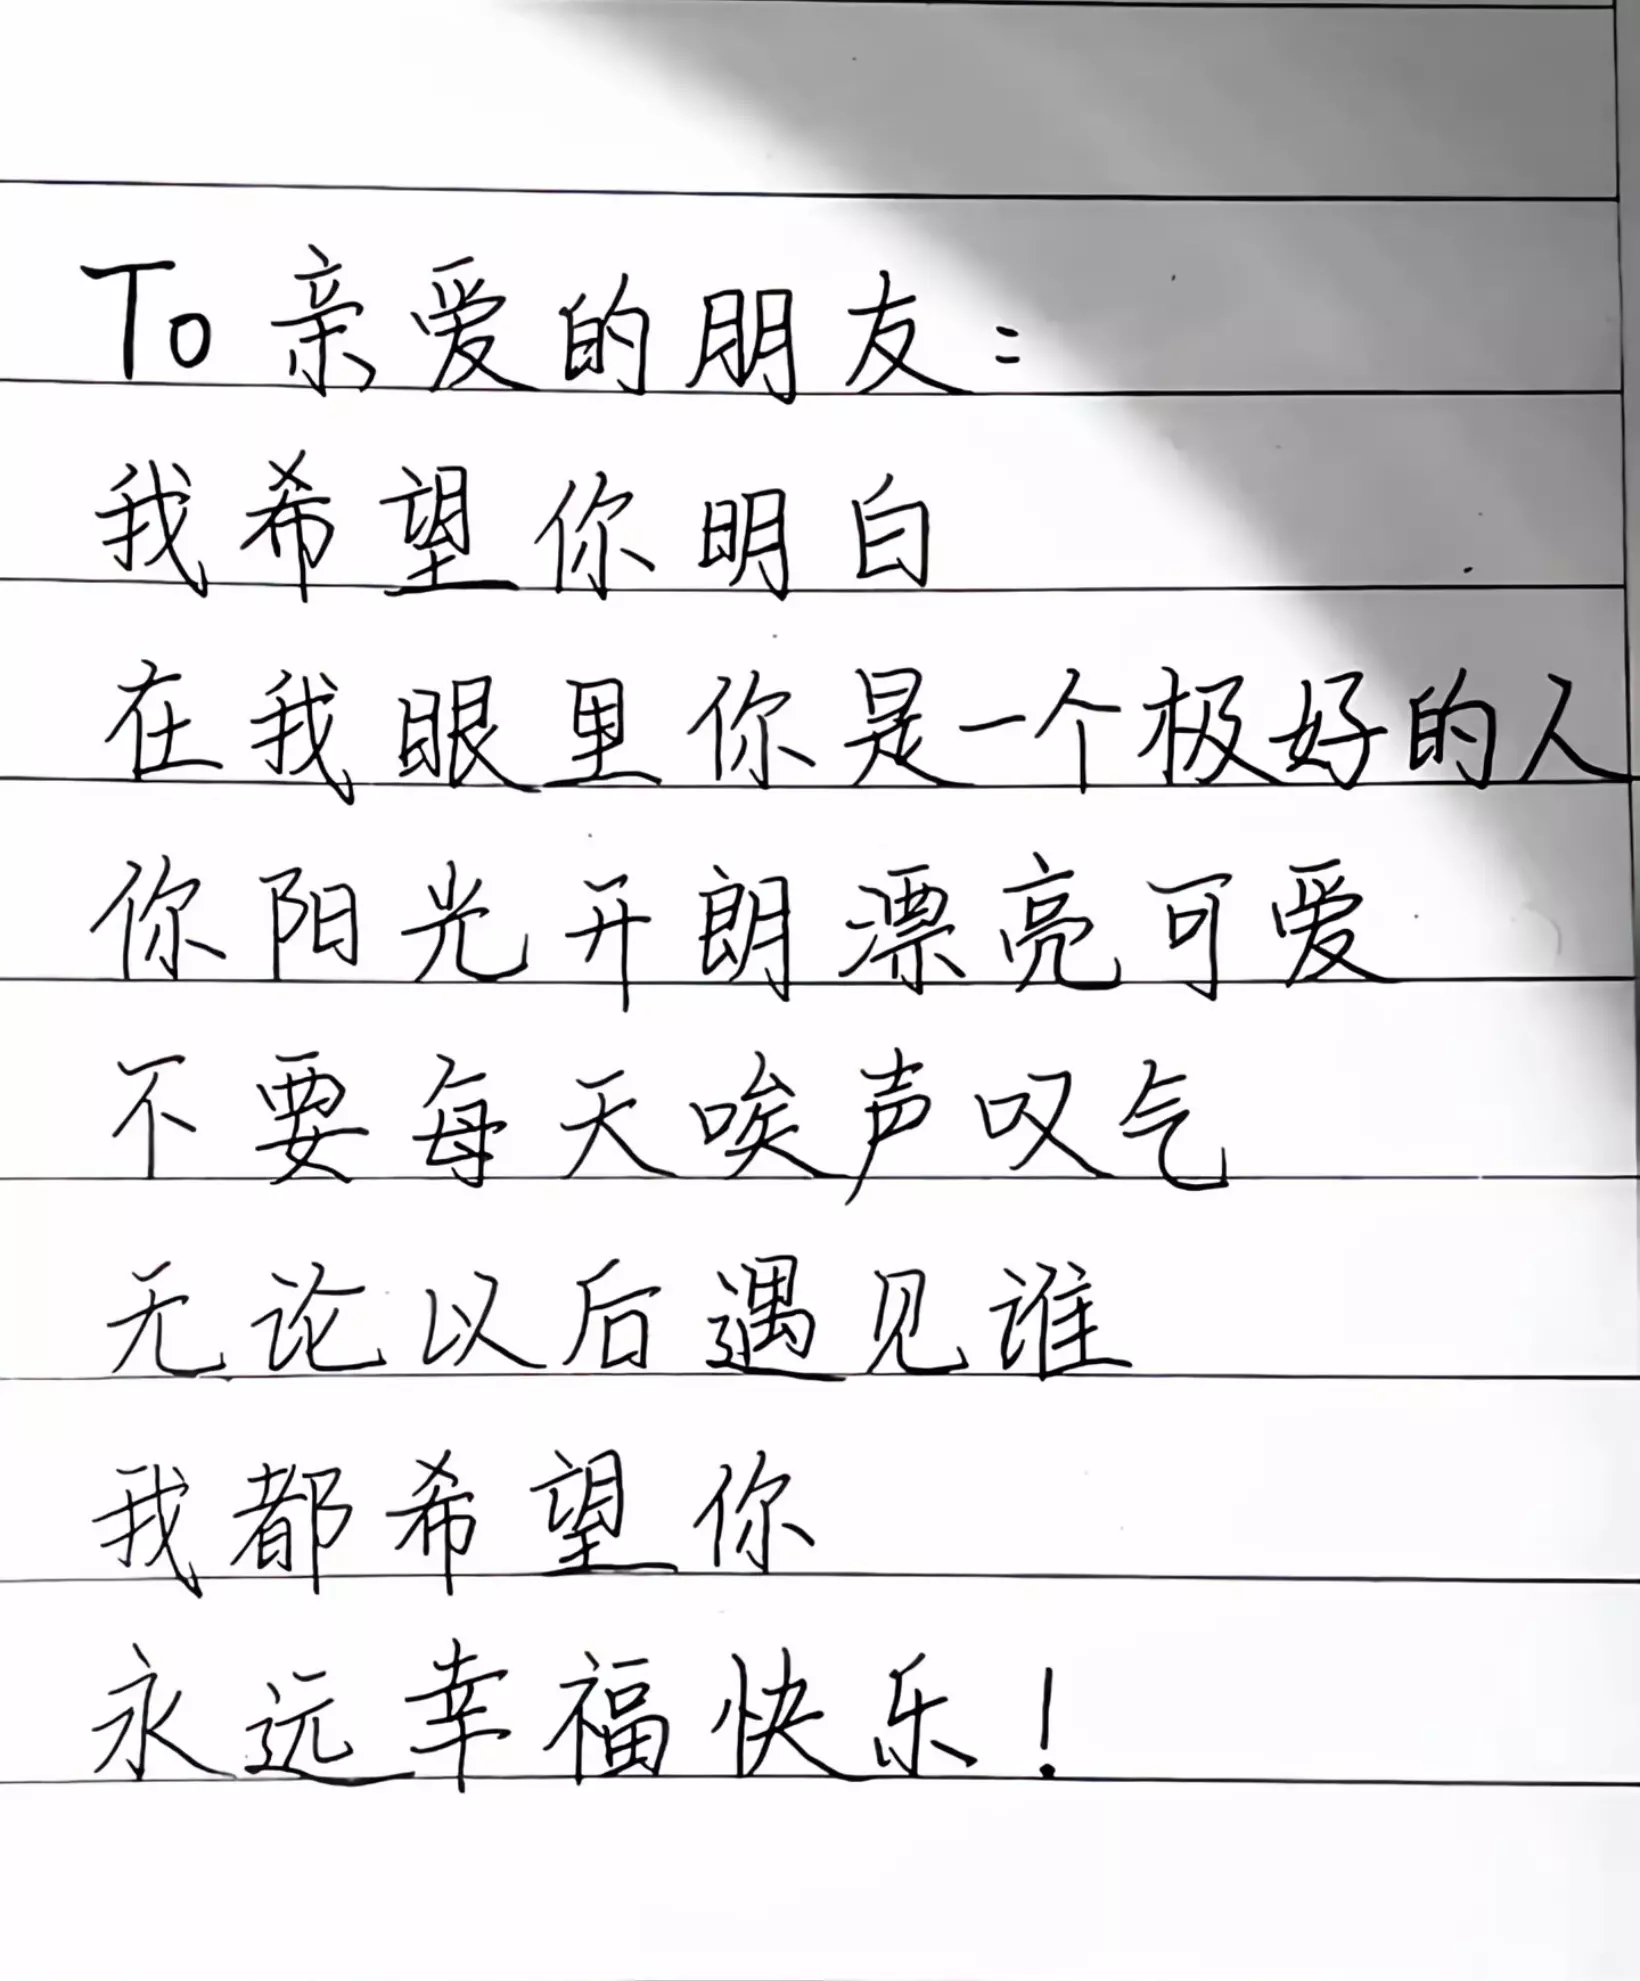 To亲爱的朋友：
我希望你明白
在我眼里你是一个极好的人
你阳光开朗漂亮可爱
不要每天唉声叹气
无论以后遇见谁
我都希望你
永远幸福快乐！